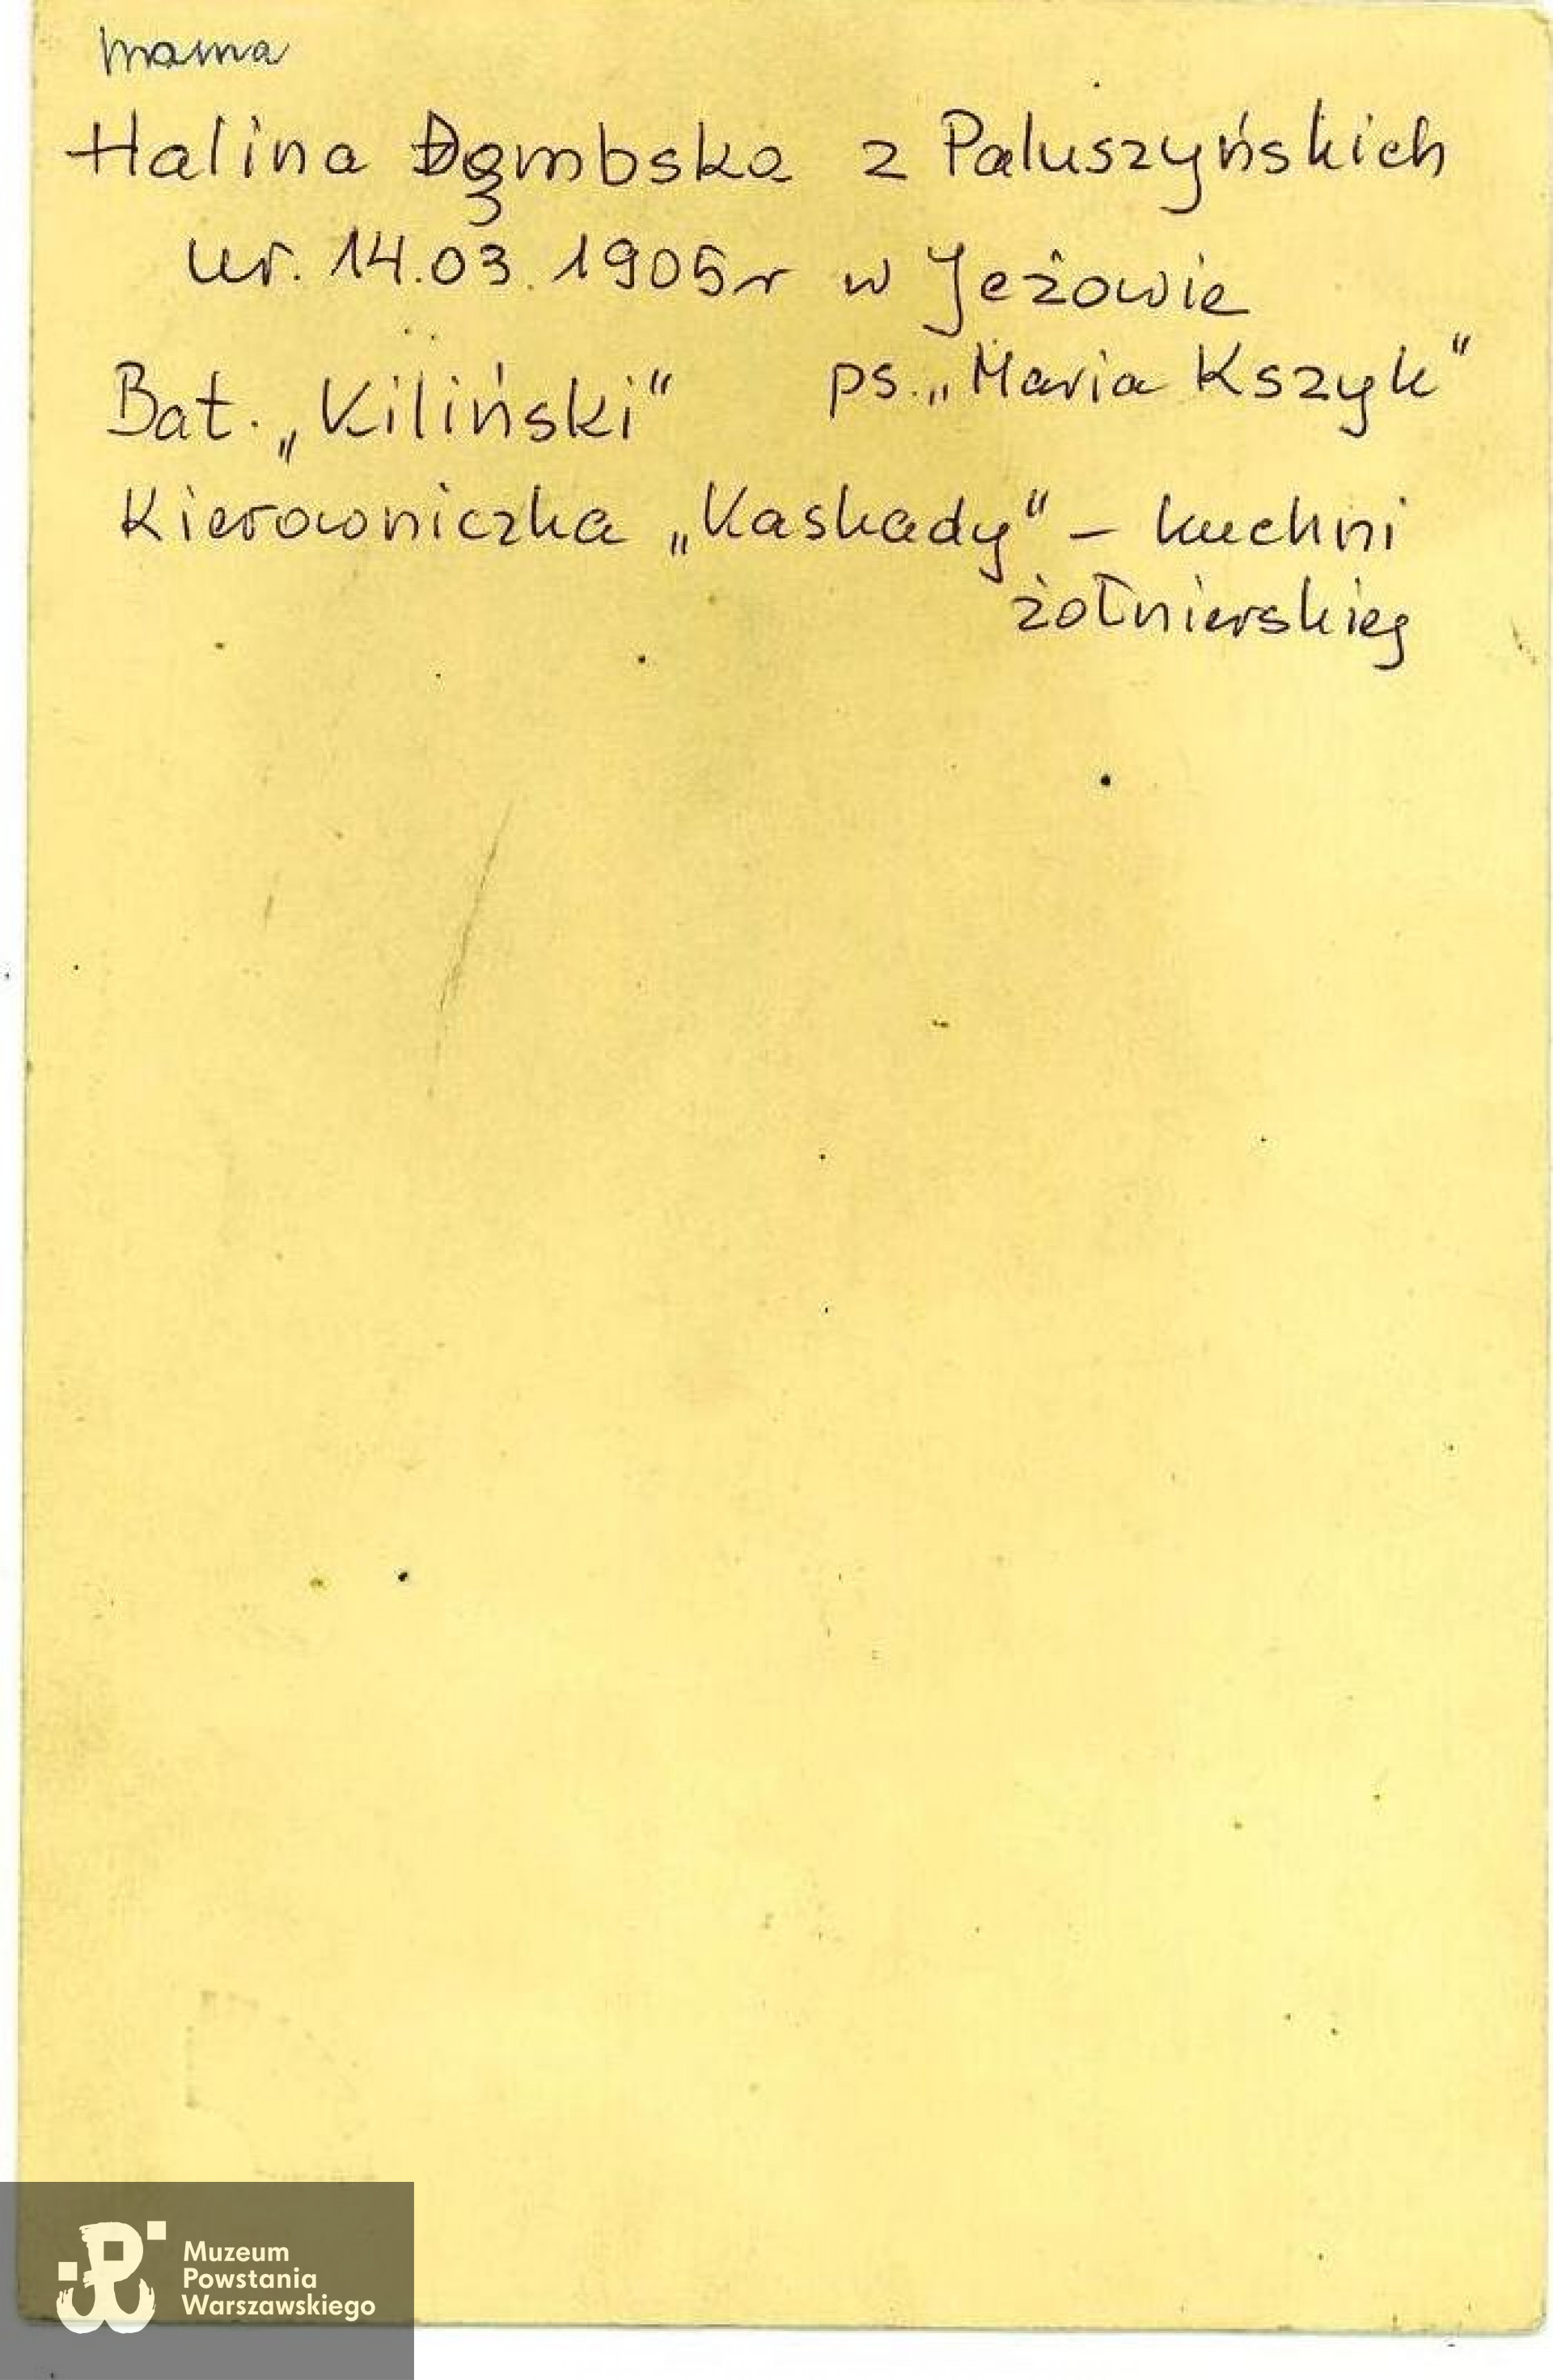 mama
Halina Dąmbska z Paluszyńskich
ur. 14.03.1905r w Jeżowie
Bat. „Kiliński" ps. „Maria Kszyk"
Kierowniczka „Kaskady" – kuchni
żołnierskiej
Muzeum
Powstania
Warszawskiego